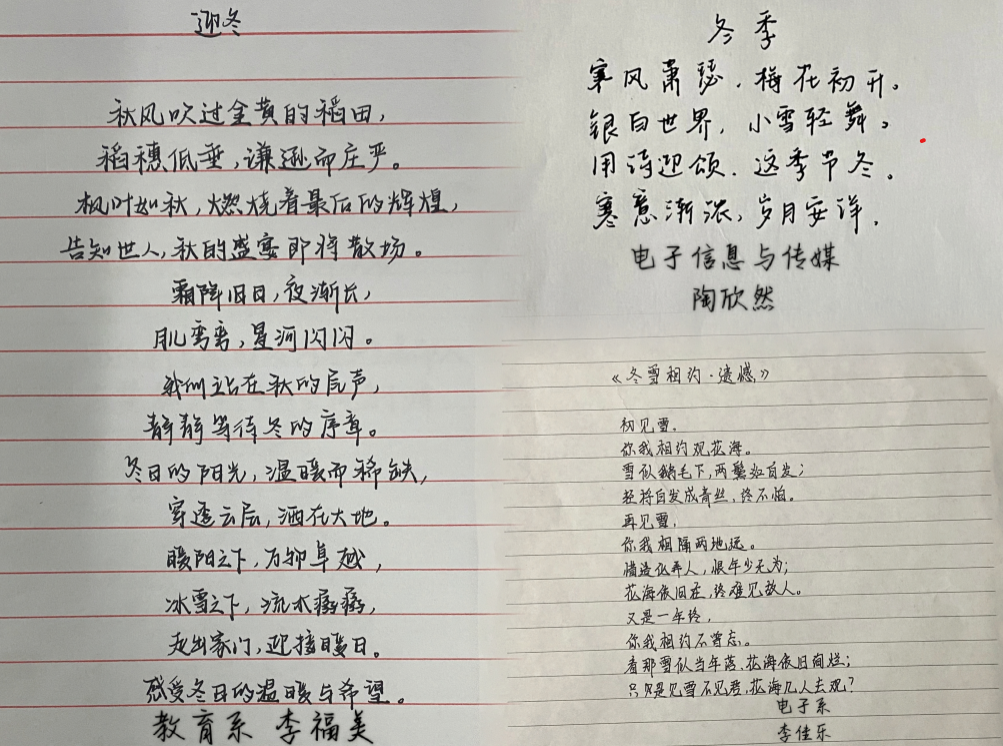 迎冬
秋风吹过金黄的稻田，
稻穗低垂，谦逊而庄严。
枫叶如秋，燃烧着最后的辉煌，
告知世人，秋的盛宴即将散场。
霜降旧日，夜渐长，
月儿弯弯，星河闪闪。
我们站在秋的尾声，
静静等待冬的序章。
冬日的阳光，温暖而稀缺，
穿透云层，洒在大地。
暖阳之下，万物
冰雪之下，流水潺潺，
走出家门，迎接暖日。
感受冬日的温暖与希望。
教育系 李福美
冬季
寒风萧瑟，梅花初开。
银白世界，小雪轻舞。
用诗迎颂，这季节冬。
寒意渐浓，岁月安详。
电子信息与传媒
陶欣然
《冬雪相约·遗憾》
初见雪，
你我相约观花海。
雪似鹅毛下，两鬓如白发；
轻将白发成青丝，终不怕。
再见雪，
你我相隔两地远。
惜造化弄人，恨年少无为；
花海依旧在，终难见故人。
又是一年终，
你我相约不曾忘。
看那雪似当年落，花海依旧绚烂；
只见是见雪不见君，花海几人去观？
电子系
李佳乐